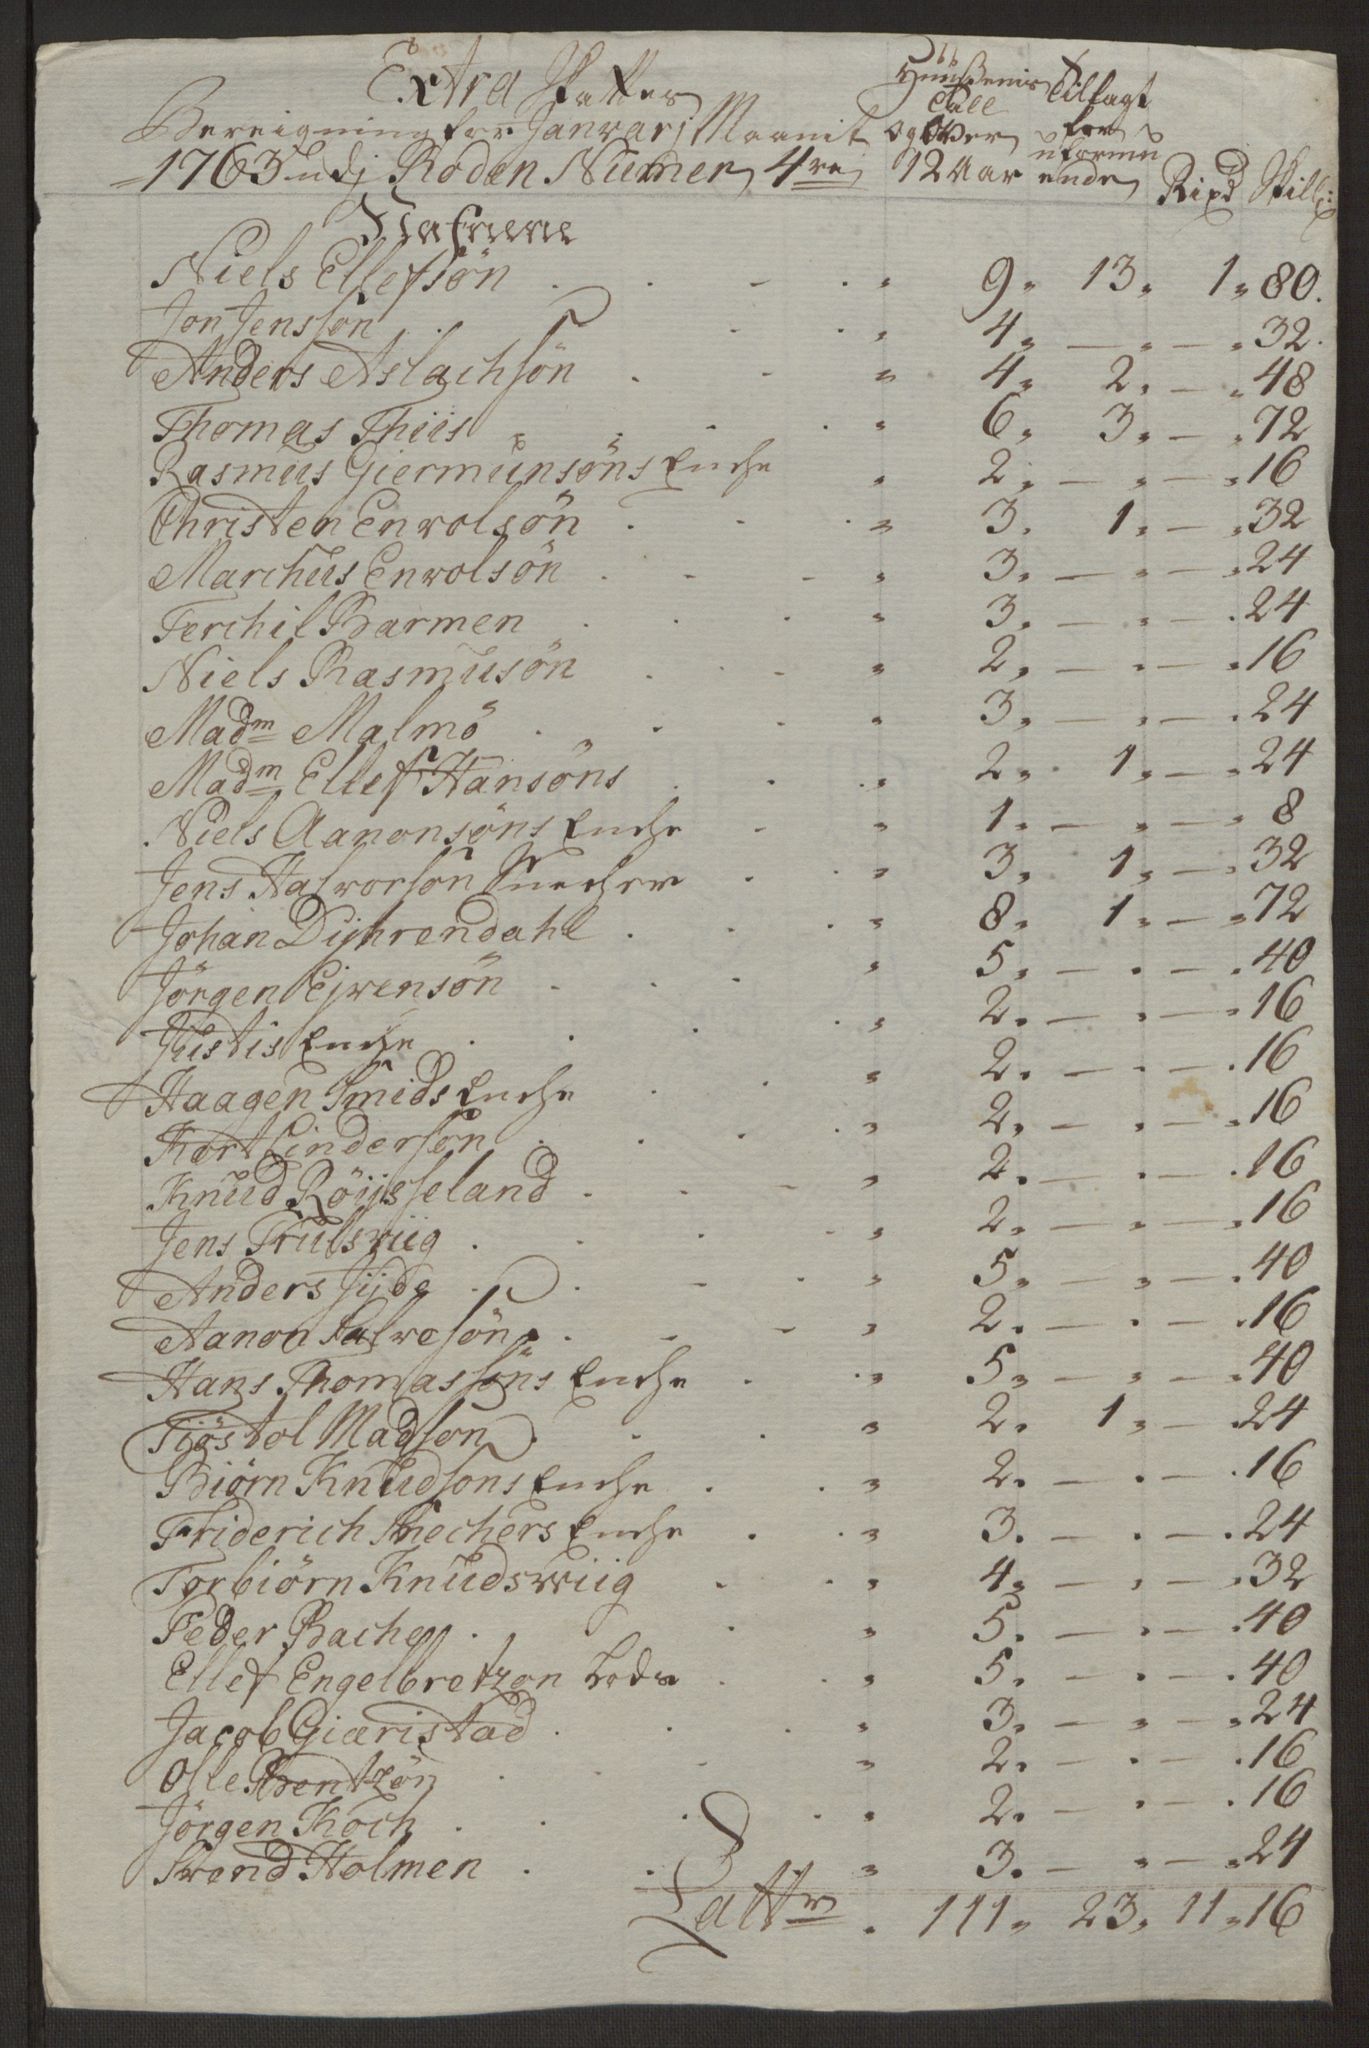 Extra Skattes
Bereigning for Janvarj Maanit
1763 udj Roden Numer 4re
Huußenis Tall og over 12 Aar
Tillagt for uformuende
Rixd Skill:
Nafnene
Niels Ellefsön 9. 13. 1. 80.
Jon Jensson 4. — . — . 32.
Anders Aslachsön 4. 2. — . 48
Thomas Thiis 6. 3. — . 72
Rasmus Giermunsöns Enche 2. — . — . 16
Christen Enwolsön 3. 1. — . 32
Marchus Enwolsön 3. — . — . 24
Terchil Barmen 3. — . — . 24
Niels Rasmusön 2. — . — . 16
Madm Malmö 3. — . — . 24
Madm Ellef Hansöns 2. 1. — . 24
Niels Aanonsöns Enche 1. — . — . 8
Jens Halvorson Snecher 3. 1. — . 32
Johan Dyhrendahl 8. 1. — . 72
Jörgen Ejvensön 5. — . — . 40
Justis Enche 2. — . — . 16
Haagen Smids Enche 2. — . — . 16
Kort Einderson 2. — . — . 16
Knud Röijsseland 2. — . — . 16
Jens Trulsviig 2. — . — . 16
Anders Jijde 5. — . — . 40
Aanon Salvesön 2. — . — . 16
Hans Thomassöns Enche 5. — . — . 40
Tiöstol Madson 2. 1. — . 24
Biörn Knudsons Enche 2. — . — . 16
Friderich Snechers Enche 3. — . — . 24
Torbiörn Knudswiig 4. — . — . 32
Peder Bache 5. — . — . 40
Ellef Engelbretzon Lods 5. — . — . 40
Jacob Giæristad 3. — . — . 24
Olle Bentzön 2. — . — . 16
Jörgen Koch 2. — . — . 16
Svend Holmen 3. — . — . 24
Latter . 111. 23. 11. 16